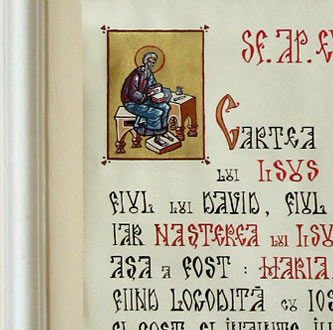 SF. AP. EV
CARTEA
LUI IISUS
FIUL LUI DAVID, FIUL
IAR NAȘTEREA LUI IISU
AȘA A FOST : MARIA
FIIND LOGODITĂ CU IOS